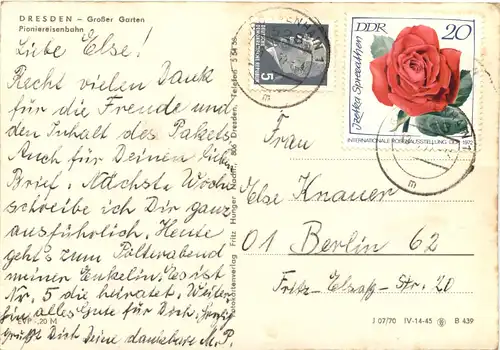 DRESDEN – Großer Garten
Pioniereisenbahn
Liebe Else!
Recht vielen Dank
für die Freude und
den Inhalt des Pakets
Auch für Deinen lieben
Brief. Nächste Woche
schreibe ich Dir ganz
ausführlich. Heute
geht's zum Polterabend
meiner Enkelin. Es ist
Nr. 5 die heiratet. Weiter-
hin alles Gute für Dich.
grüßt Dich Deine dankbare M. P.
EVP -,20 M
Fotokartenverlag Fritz Hunger Nachf., 806 Dresden, Telefon 5 54 36
DEUTSCHE DEMOKRATISCHE REPUBLIK
5
DDR 20
Izetka Spreeathen
INTERNATIONALE ROSENAUSSTELLUNG DDR 1972
Frau
Else Knauer
01 Berlin 62
Fritz-Elsaß-Str. 20
J 07/70 IV-14-45 B 439